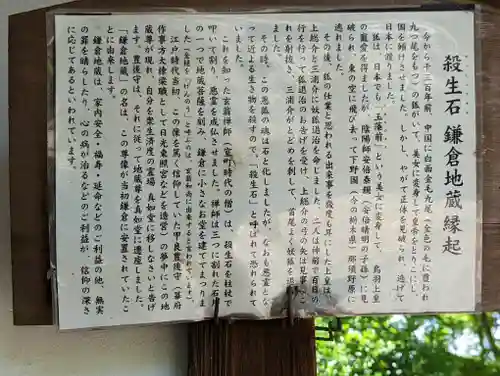 殺生石 鎌倉地蔵縁起
今から千三百年前、中国に白面金毛九尾(金色の毛に覆われ
九つ尾をもつ)の狐がいて、美女に変身して皇帝をとりこにし、
国を傾けさせました。しかし、やがて正体を見破られ、逃げて
日本に渡りました。
狐は、日本でも「玉藻前」という美女に変身して、鳥羽上皇
の寵愛を得ましたが、陰陽師安倍泰親(安倍晴明の子孫)に見
破られ、東の空に飛び去って下野国(今の栃木県)那須野原に
逃れました。
その後、狐の仕業と思われる出来事を幾度も耳にした上皇は、
上総介と三浦介に妖狐退治を命じました。二人は神前で百日の
行を行って狐退治のお告げを受け、上総介の弓の矢は見事
れを射抜き、三浦介がとどめを刺して、首尾よく妖狐を退
その時、この悪狐の魂は石と化しましたが、なおも悪霊とな
って近よる生き物を殺すので、「殺生石」と呼ばれて恐れられて
これを知った玄翁禅師(室町時代の僧)は、殺生石を柱杖で
叩いて割り、悪霊を成仏させました。禅師は三つに割れた石片
の一つで地蔵菩薩を刻み、鎌倉に小さなお堂を建ててまつりま
した(金槌を「げんのう」と呼ぶのは、玄翁和尚に由来すると言われています)。
江戸時代当初、この像を篤く信仰していた甲良豊後守(幕府
作事方大棟梁職として日光東照宮などを造営)の夢中にこの地
蔵尊が現れ、自分を衆生済度の霊場、真如堂に移しなさいと告げ
ます。豊後守は、それに従って地蔵尊を真如堂に遷座しました。
「鎌倉地蔵」の名は、この尊像が当初鎌倉に安置されていたこ
とに由来します。
鎌倉地蔵は、家内安全・福寿・延命などのご利益の他、無実
の罪を晴らしたり、心の病が治るなどのご利益が、信仰の深さ
に応じてあるといわれています。